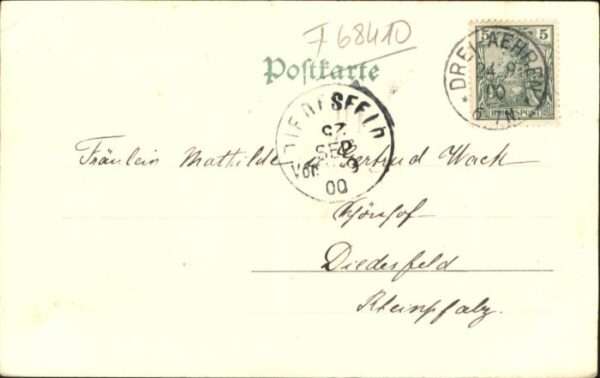 F 68410
Postkarte
5 5
REICHSPOST
DREI-AEHREN
24 9
00
DIEDESFELD
25
SEP
00
Fräulein Mathilde Gertrud Wack
Diedesfeld
Rheinpfalz.